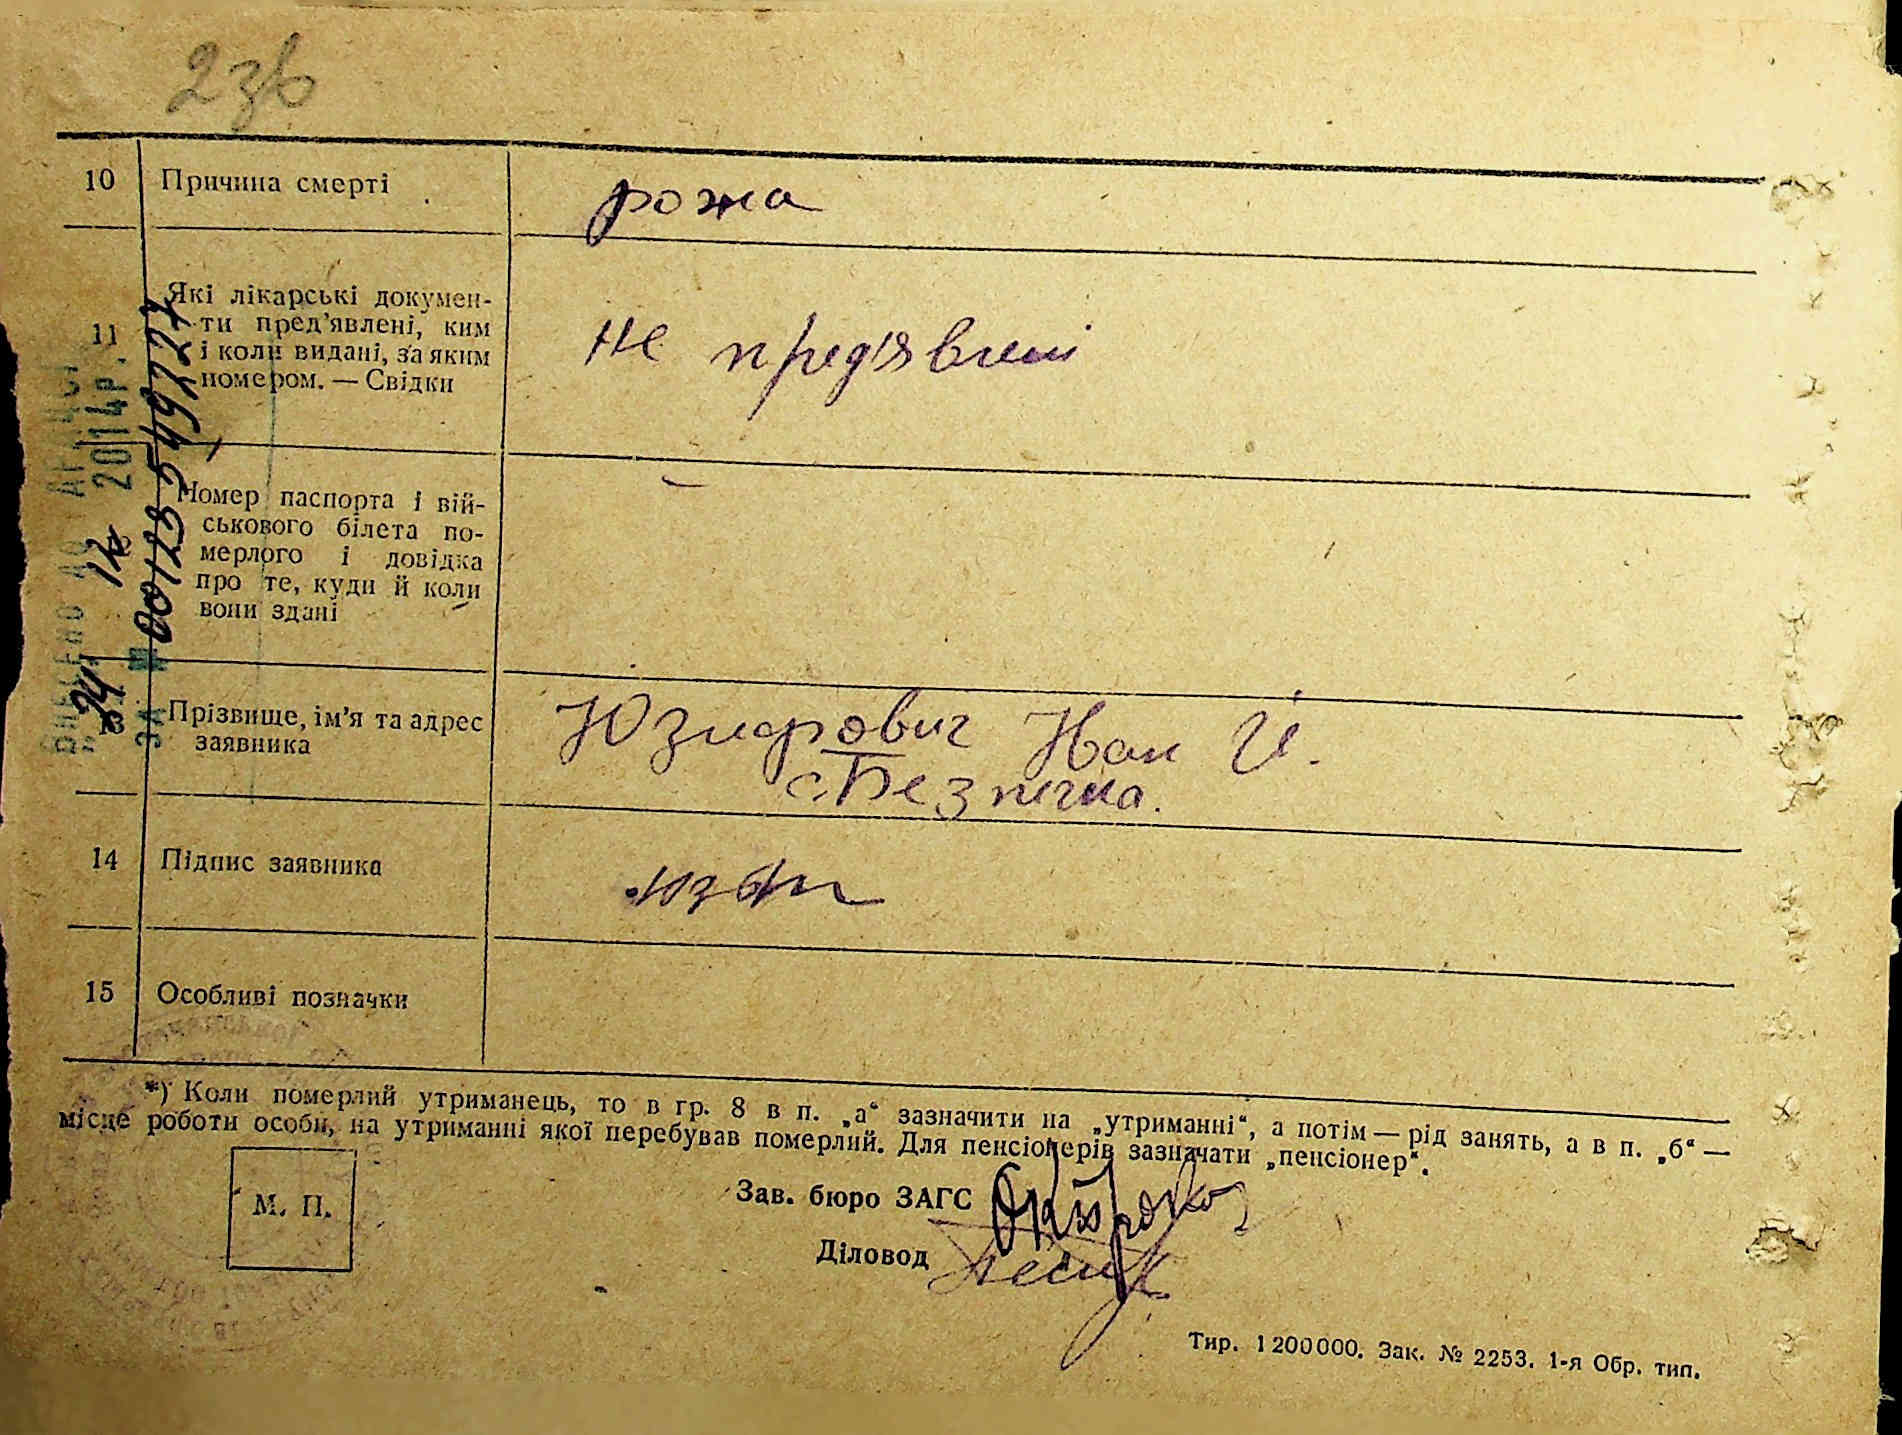 2зв
10 Причина смерті рожа
Які лікарські докумен-
11 ти пред'явлені, ким не пред'явлені
і коли видані, за яким
номером. — Свідки
Номер паспорта і вій- —
ськового білета по-
12 мерлого і довідка
про те, куди й коли
вони здані
13 Прізвище, ім'я та адрес Юзифович Иван И.
заявника с. Безпечна.
14 Підпис заявника
15 Особливі позначки
*) Коли померлий утриманець, то в гр. 8 в п. „а“ зазначити на „утриманні“, а потім — рід занять, а в п. „б“ —
місце роботи особи, на утриманні якої перебував померлий. Для пенсіонерів зазначати „пенсіонер“.
М. П.
Зав. бюро ЗАГС
Діловод
Тир. 1200000. Зак. № 2253. 1-я Обр. тип.
24 12 2014р.
ЗА № 00128549727